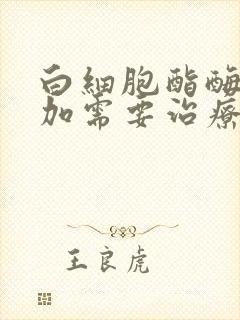 白细胞酯酶
加需要治疗
王良虎